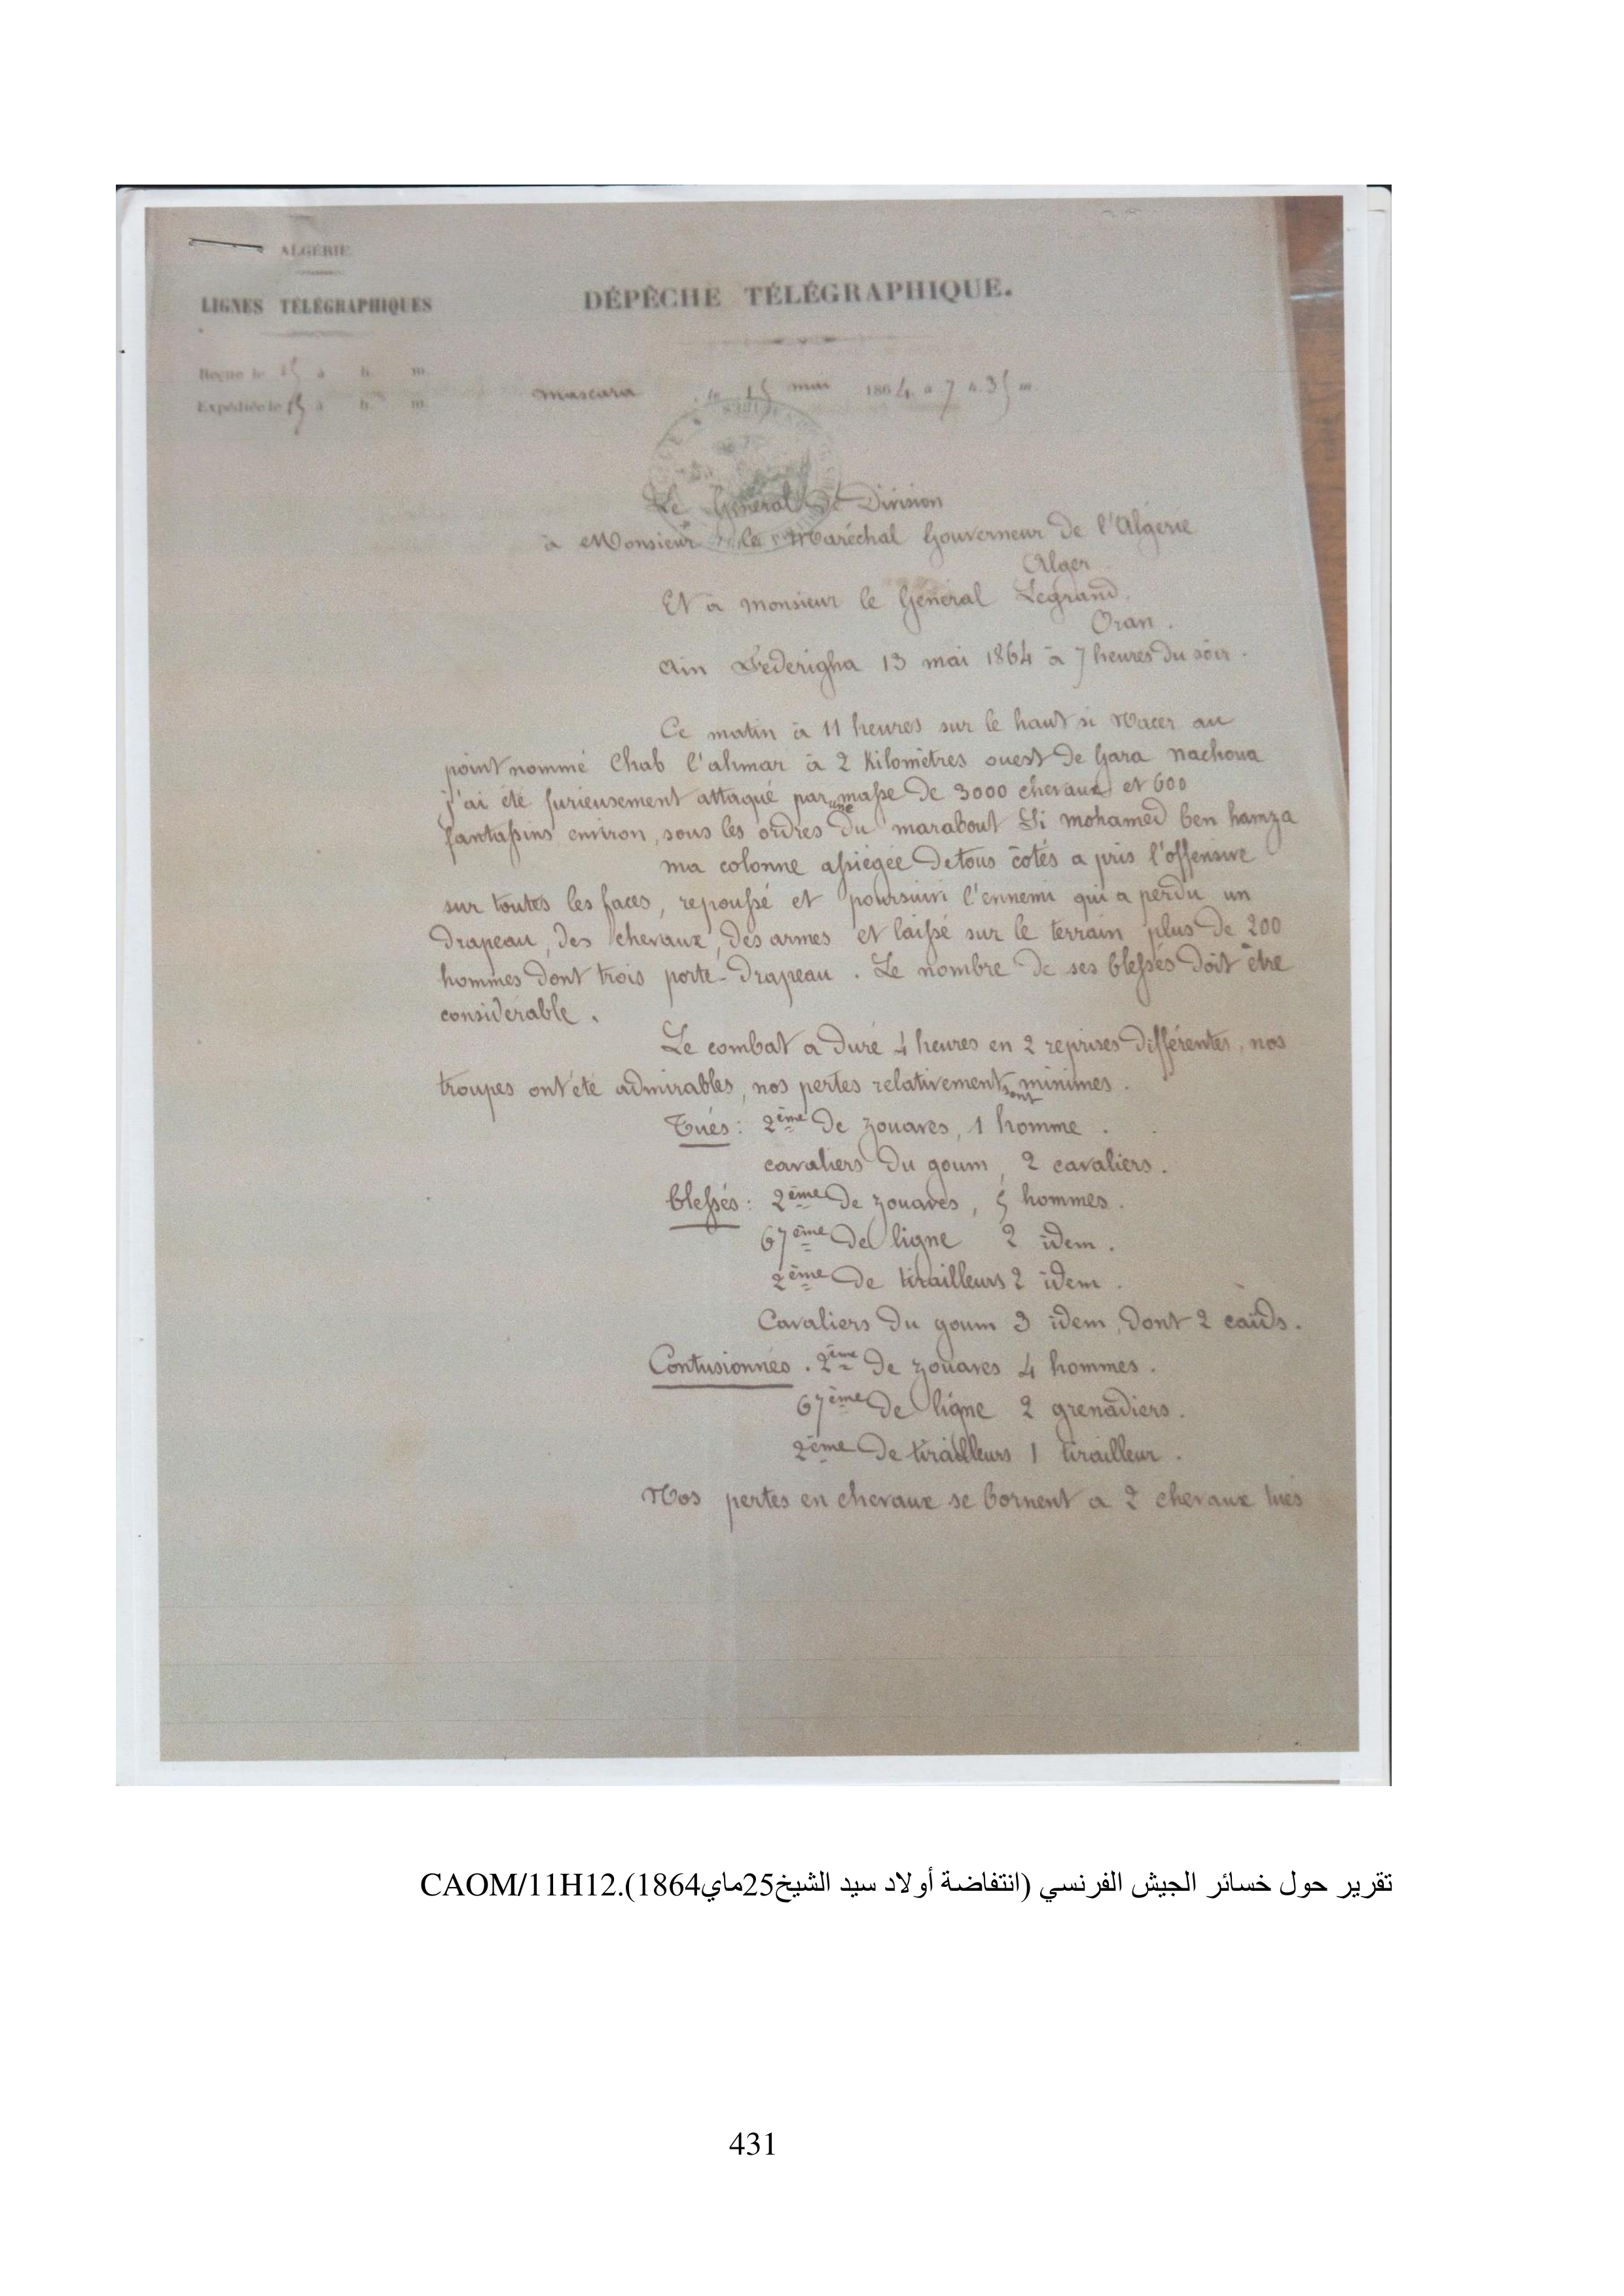 ALGÉRIE
LIGNES TÉLÉGRAPHIQUES
DÉPÊCHE TÉLÉGRAPHIQUE.
Reçue le 15 à h. m.
Expédiée le 15 à h. m.
Mascara le 15 mai 1864 à 7 h. 35 m.
Le Général de Division
à Monsieur le Maréchal Gouverneur de l'Algérie
Alger
Et à Monsieur le Général Legrand.
Oran.
Ain 13 mai 1864 à 7 heures du soir.
Ce matin à 11 heures sur le haut si Nacer au
point nommé Chab l'ahmar à 2 Kilomètres ouest de Gara Nachoua
j'ai été furieusement attaqué par une masse de 3000 chevaux et 600
fantassins environ, sous les ordres du marabout Si mohamed ben hamza
ma colonne assiégée de tous côtés a pris l'offensive
sur toutes les faces, repoussé et poursuivi l'ennemi qui a perdu un
drapeau, des chevaux, des armes et laissé sur le terrain plus de 200
hommes dont trois porte-drapeau. Le nombre de ses blessés doit être
considérable.
Le combat a duré 4 heures en 2 reprises différentes, nos
troupes ont été admirables, nos pertes relativement sont minimes.
Tués: 2ème de zouaves, 1 homme.
cavaliers du goum, 2 cavaliers.
blessés: 2ème de zouaves, 5 hommes.
67ème de ligne 2 idem.
2ème de tirailleurs 2 idem.
Cavaliers du goum 3 idem, dont 2 caïds.
Contusionnés. 2ème de zouaves 4 hommes.
67ème de ligne 2 grenadiers.
2ème de tirailleurs 1 tirailleur.
Nos pertes en chevaux se bornent a 2 chevaux tués
تقرير حول خسائر الجيش الفرنسي (انتفاضة أولاد سيد الشيخ25ماي1864).CAOM/11H12
431